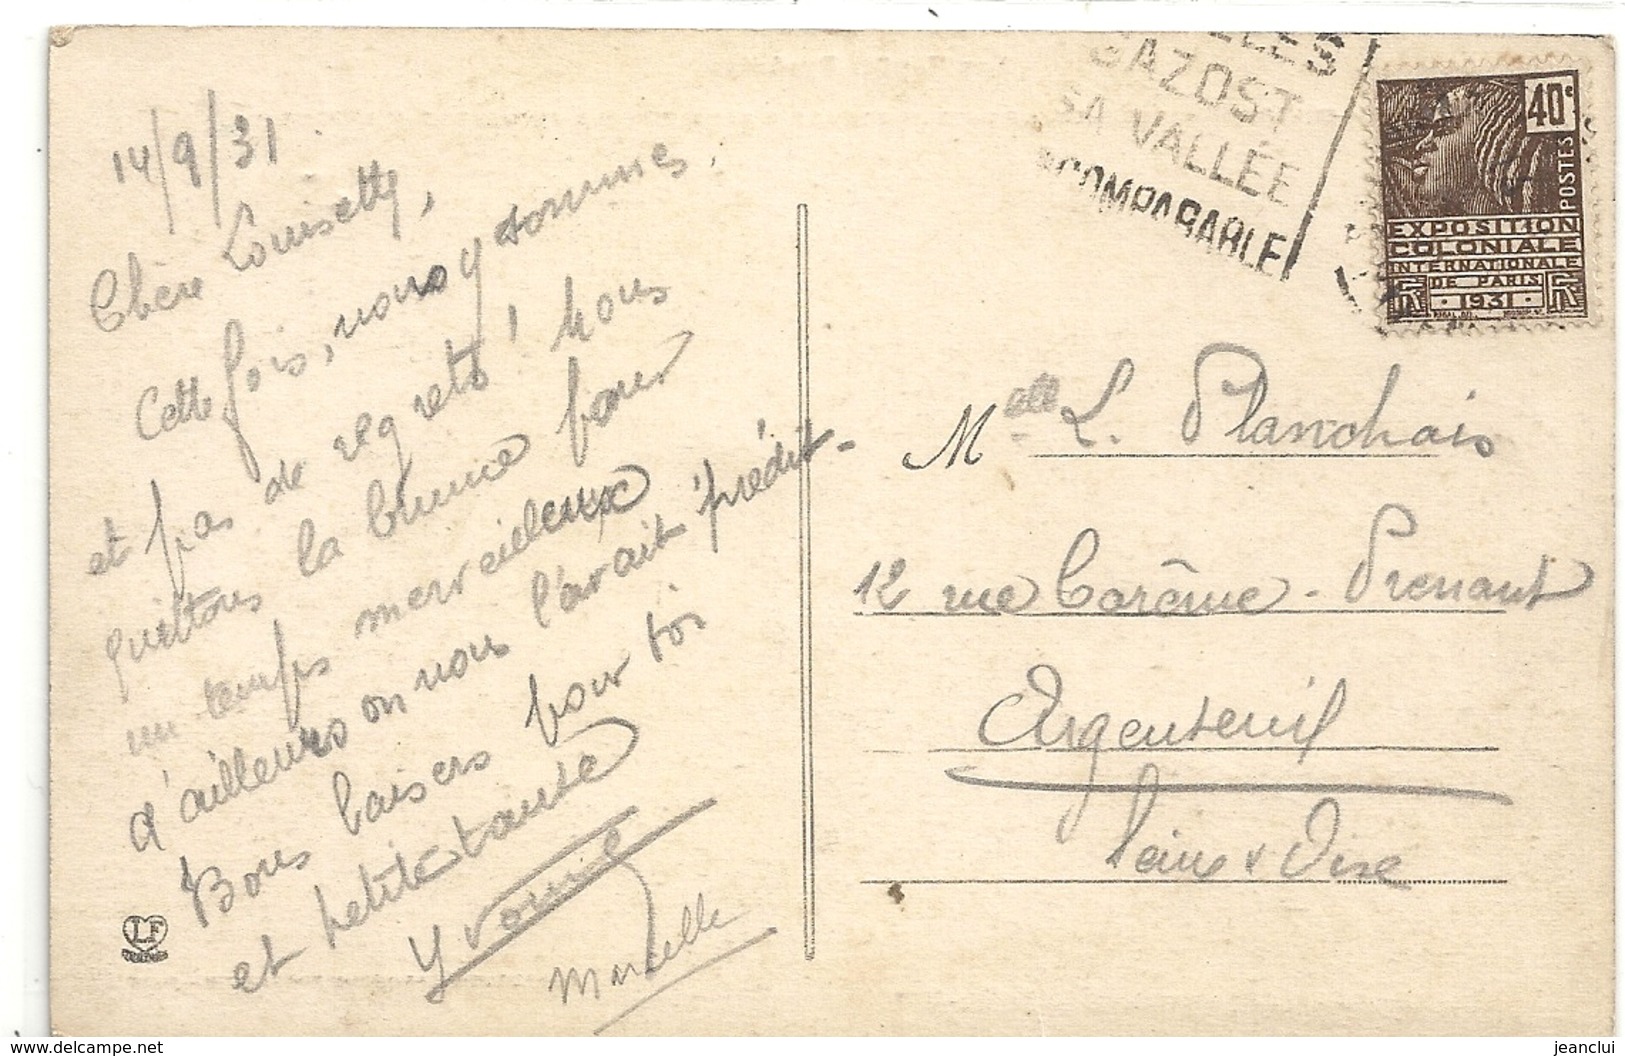 14/9/31
Chère Louisette,
Cette fois, nous y sommes,
et pas de regrets! nous
quittons la brume pour
un temps merveilleux
d'ailleurs on nous l'avait prédit -
Bons baisers pour toi
et petite tante
Yvonne
Marcelle
LF
LLES
GAZOST
SA VALLÉE
COMPARABLE
40c
POSTES
EXPOSITION
COLONIALE
INTERNATIONALE
DE PARIS
1931
Melle L. Planchais
12 rue Carême-Prenant
Argenteuil
Seine & Oise
https://www.delcampe.net
jeanclui